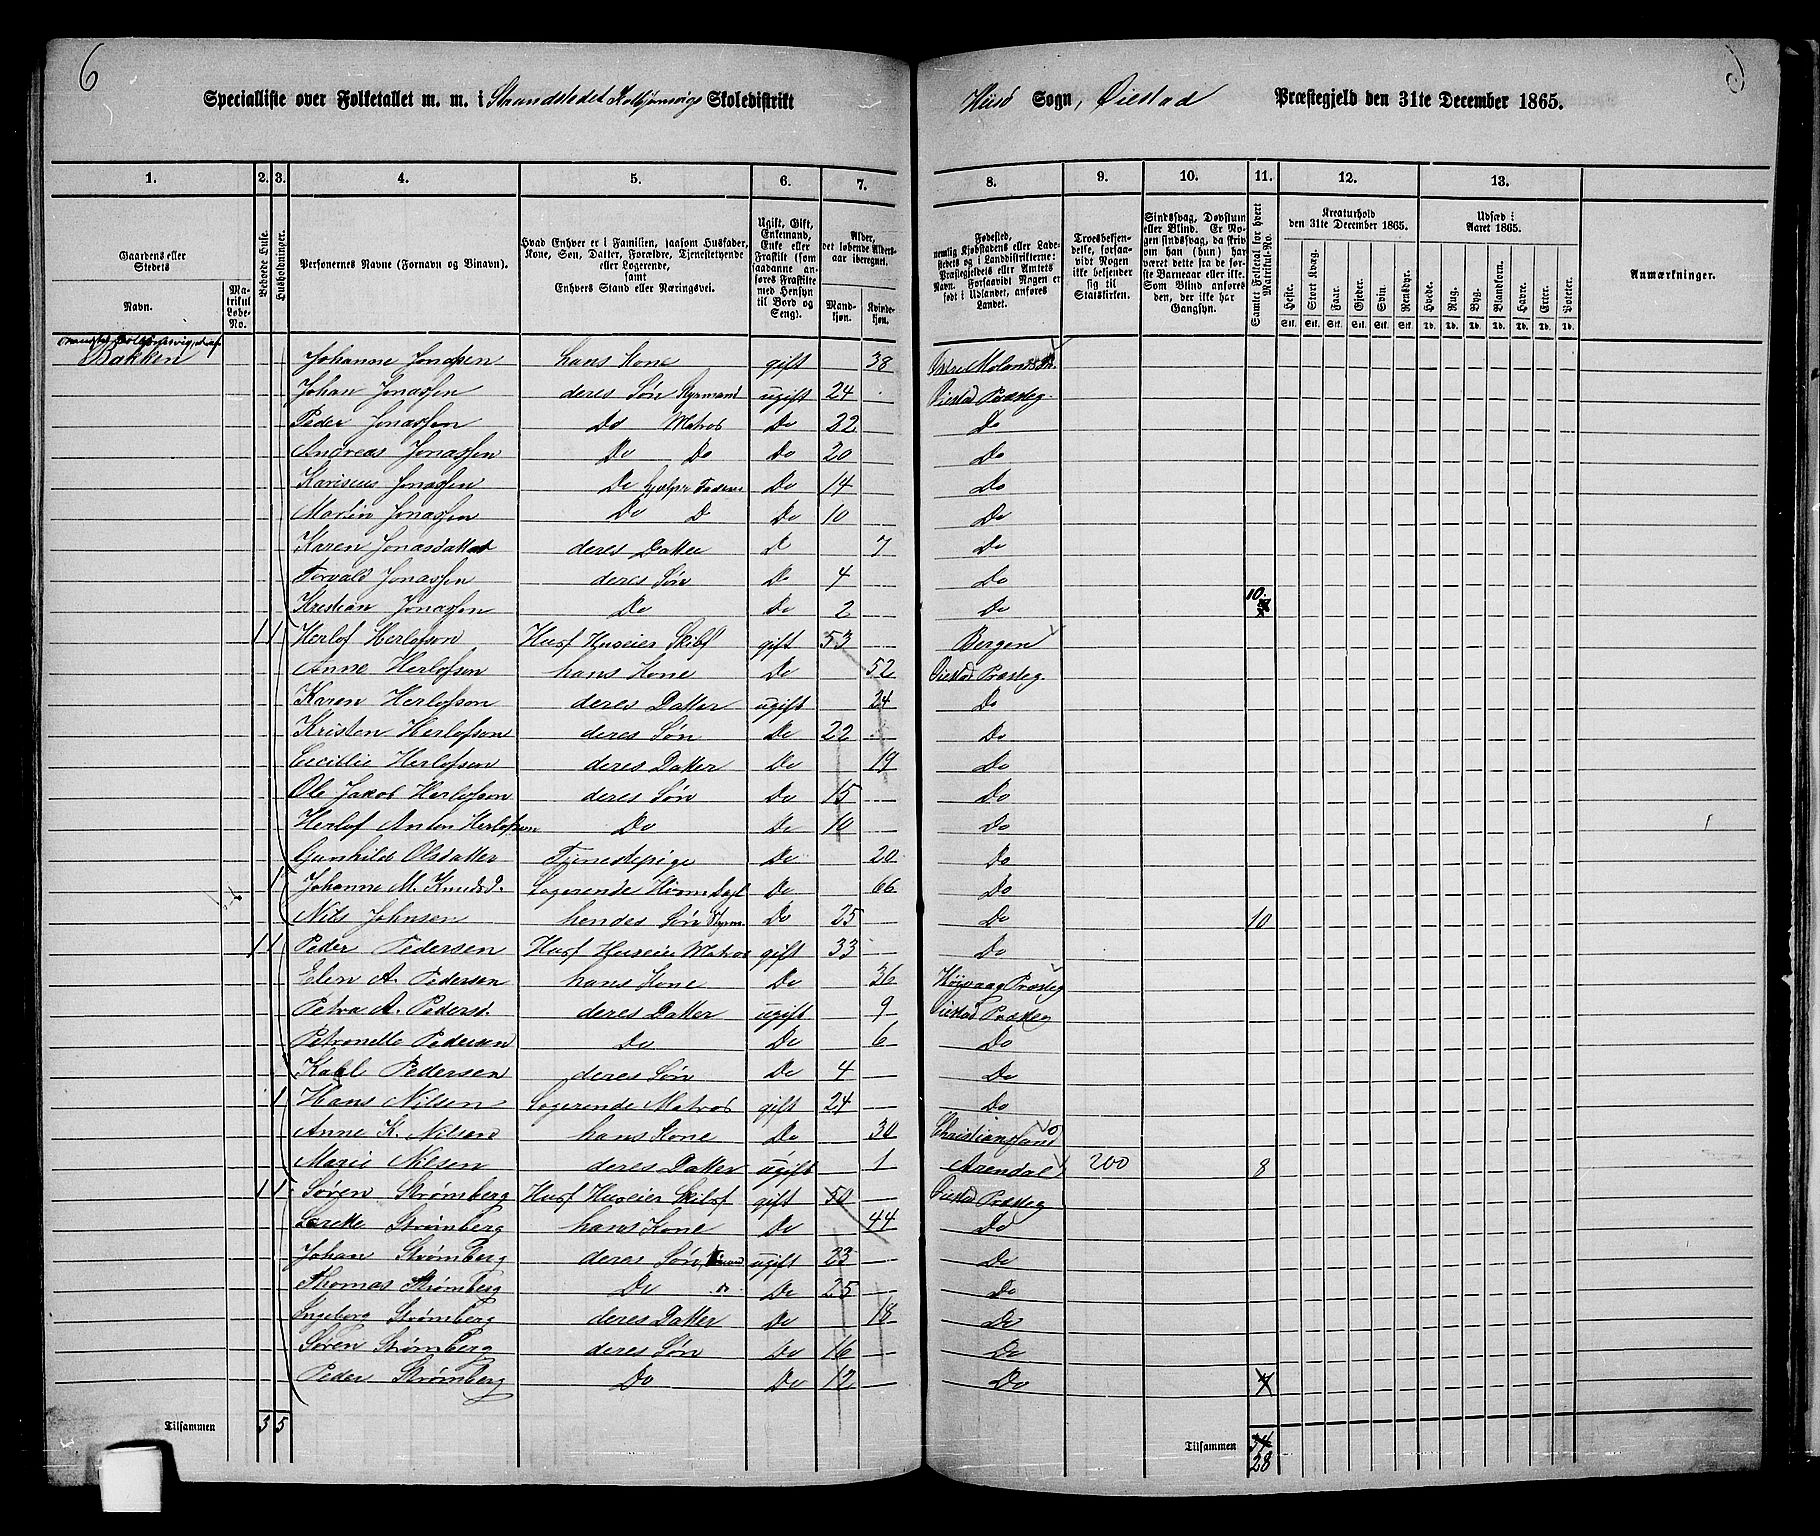 6
Specialliste over Folketallet m. m. i Strandstedet Kolbjørnsvigs Skoledistrikt
Hisö Sogn, Øiestad Præstegjeld den 31te December 1865.
1. 2. 3. 4. 5. 6. 7. 8. 9. 10. 11. 12. 13.
Gaardens eller Stedets
Navn.
Matrikul Løbe-No.
Beboede Huse.
Husholdninger.
Personernes Navne (Fornavn og Tilnavn).
Hvad Enhver er i Familien, saasom Husfader, Kone, Søn, Datter, Forældre, Tjenestetyende eller Logerende, samt Enhvers Stand eller Næringsvei.
Ugift, Gift, Enkemand, Enke eller Fraskilt (som saadanne anføres Fraskilte med Hensyn til Bord og Seng).
Alder, det løbende Alders-aar iberegnet.
Mandkjøn.
Kvindekjøn.
Fødested, nemlig Kjøbstadens eller Ladestedets og i Landdistrikterne: Præstegjeldets eller Amtets Navn. Forsaavidt Nogen er født i Udlandet, anføres Landet.
Troesbekjendelse, forsaavidt Nogen ikke bekjender sig til Statskirken.
Sindssvag, Døvstum eller Blind. Er Nogen sindssvag, da skrives om han (hun) har været dette fra de første Barneaar eller ikke. Som Blind anføres den, der ikke har Gangsyn.
Samlet Folketal for hvert Matrikul-No.
Kreaturhold den 31te December 1865.
Heste. Stort Kvæg. Faar. Gjeder. Svin. Rensdyr.
Stk. Stk. Stk. Stk. Stk. Stk.
Udsæd i Aaret 1865.
Hvede. Rug. Byg. Blandkorn. Havre. Erter. Poteter.
Td. Td. Td. Td. Td. Td. Td.
Anmærkninger.
Bakken Johanne Jonassen hans Kone gift 38
Johan Jonassen deres Søn Styrmand ugift 24 Øiestad Præsteg.
Peder Jonassen Do Matros Do 22 Do
Andreas Jonassen Do Do Do 20 Do
Karinius Jonassen Do hjælper Faderen Do 14 Do
Martin Jonassen Do D Do 10 Do
Karen Jonasdatter deres Datter D 7 Do
Torvald Jonassen deres Søn Do 4 Do
Kristian Jonassen Do Do 2 Do 10.
1 1 Herlof Herlofson Husf Huseier Skibsf gift 53 Bergen
Anne Herlofson hans Kone Do 52 Øiestad Præsteg
Karen Herlofson deres Datter ugift 24 Do
Kristen Herlofson deres Søn Do 22 Do
Cecillie Herlofson deres Datter Do 19 Do
Ole Jakob Herlofson deres Søn Do 15 Do
Herlof Anton Herlofson Do Do 10 Do
Gunhild Olsdatter Tjenestepige Do 20 Do
1 Johanne M. Knudsd. Logerende Do 66 Do
Nils Johnsen hendes Søn Styrm. Do 25 Do 10
1 1 Peder Pedersen Husf Huseier Matros gift 33 Do
Elen A. Pedersen hans Kone Do 36 Høivaag Præsteg
Petra A. Pedersd. deres Datter ugift 9 Øiestad Præsteg
Petronelle Pedersen Do Do 6 Do
Karl Pedersen deres Søn Do 4 Do
1 Hans Nilsen Logerende Matros gift 24 Do
Anne K. Nilsen hans Kone Do 30 Christiansand
Marie Nilsen deres Datter ugift 1 Arendal 200 8
1 1 Søren Strømberg Husf Huseier Skibsf gift 50 Øiestad Præsteg
Grethe Strømberg hans Kone Do 44 Do
Johan Strømberg deres Søn ugift 23 Do
Thomas Strømberg Do do. Do 25 Do
Ingeborg Strømberg deres Datter Do 18 Do
Søren Strømberg deres Søn Do 16 Do
Peder Strømberg Do Do 12 Do 7
Tilsammen 3 5
Tilsammen 34
28